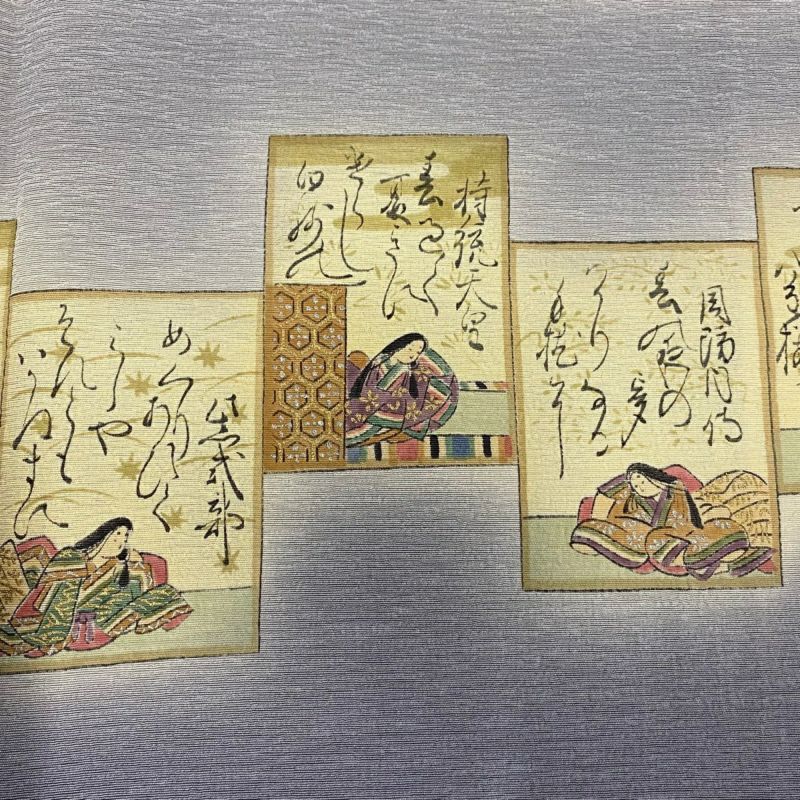 八重桜
周防内侍
春の夜の
夢
かりなる
手枕
持統天皇
春過て
夏きに
けらし
白妙の
紫式部
めくりあひて
みしや
それとも
わかぬまに